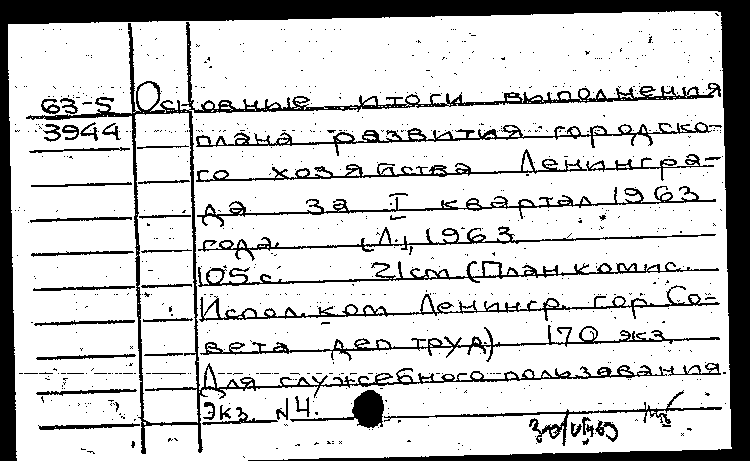 63-5 Основные итоги выполнения
3944 плана развития городско-
го хозяйства Ленингра-
да за I квартал 1963
года. [Л.], 1963.
105 с. 21 cm (План. комис.
Испол. ком Ленингр. гор. Со-
вета деп труд). 170 экз.
Для служебного пользования
Экз. N4.